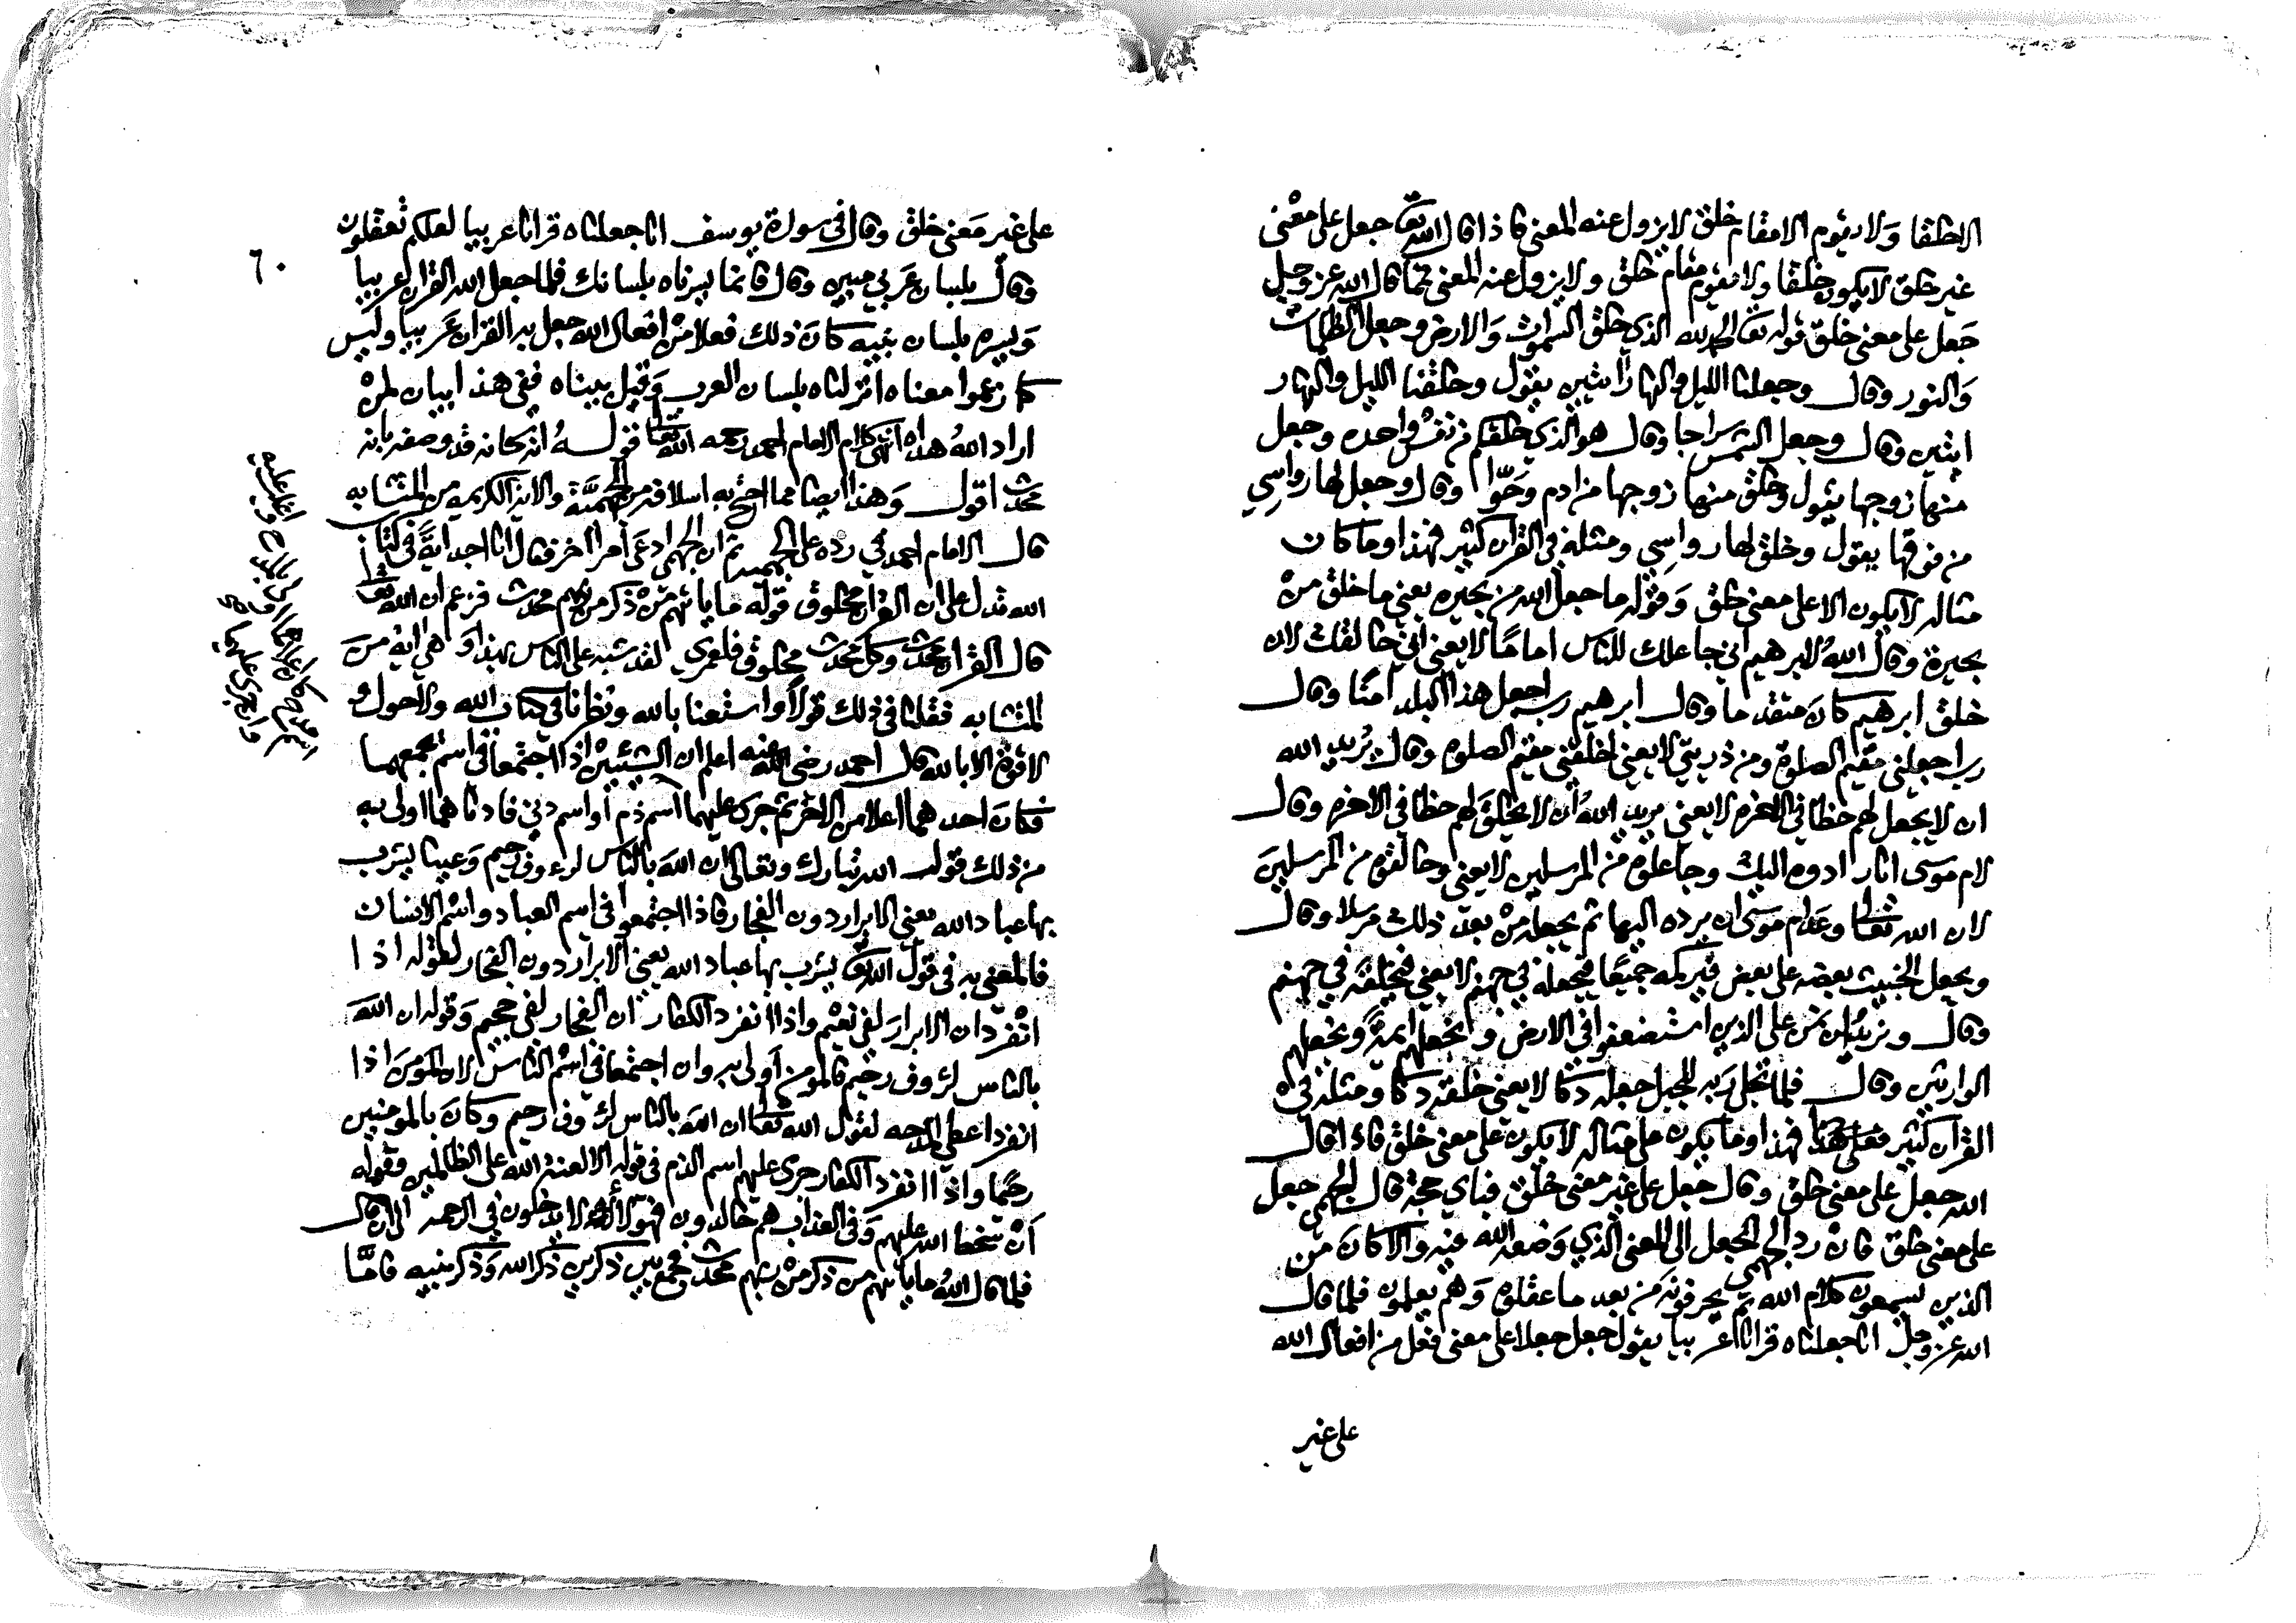 الا خلقا ولا يقوم الا مقام خلق لا يزول عنه المعنى فاذا قال الله تعا جعل على معنى
غير خلق لا يكون خلقا ولا يقوم مقام خلق ولا يزول عنه المعنى فمما قال الله عز وجل
جعل على معنى خلق قوله تعا الحمد لله الذي خلق السموات والارض وجعل الظلمات
والنور وقال وجعلنا الليل والنهار اٰيتين يقول وخلقنا الليل والنهار
ايتين وقال وجعل الشمس سراجا وقال هو الذي خلقكم من نفس واحدة وجعل
منها زوجها يقول وخلق منها زوجها من ادم وحوّا وقال وجعل لها رواسي
من فوقها يقول وخلق لها رواسي ومثله في القران كثير فهذا وما كان
مثاله لا يكون الا على معنى خلق وقوله ما جعل الله من بحيره يعني ما خلق من
بحيرة وقال الله لابرهيم اني جاعلك للناس اماما لا يعني اني خالقك لان
خلق ابرهيم كان متقدما وقال ابرهيم رب اجعل هذا البلد امنا وقال
رب اجعلني مقيم الصلوة ومن ذريتي لا يعني اخلقني مقيم الصلوة وقال يريد الله
ان لا يجعل لهم حظا في الاخرة لا يعني يريد الله ان لا يخلق لهم حظا في الاخرة وقال
لام موسى انا رادوه اليك وجاعلوه من المرسلين لا يعني وخالقوه من المرسلين
لان الله تعالى وعد ام موسى ان يرده اليها ثم يجعله من بعد ذلك مرسلا وقال
ويجعل الخبيث بعضه على بعض فيركمه جميعا فيجعله في جهنم لا يعني فيخلقه في جهنم
وقال ونريد ان نمن على الذين استضعفوا في الارض ونجعلهم ايمة ونجعلهم
الوارثين وقال فلما تجلى ربه للجبل جعله دكا لا يعني خلقه دكا ومثله في
القران كثير فهذا وما يكون على مثاله لا يكون على معنى خلق فاذا قال
الله جعل على معنى خلق وقال جعل على غير معنى خلق فباي حجة قال الجهمي جعل
على معنى خلق فان رد الجهمي الجعل الى المعنى الذي وضعه الله فيه والا كان من
الذين يسمعون كلام الله ثم يحرفونه من بعد ما عقلوه وهم يعلمون فلما قال
الله عز وجل انا جعلناه قرانا عربيا يقول جعل جعلا على معنى فعل من افعال الله
على غير
٦٠
على غير معنى خلق وقال في سورة يوسف انا جعلناه قرانا عربيا لعلكم تعقلون
وقال بلسان عربي مبين وقال فانما يسرناه بلسانك فلما جعل الله القران عربيا
ويسره بلسان نبيه كان ذلك فعلا من افعال الله جعل به القران عربيا وليس
كما زعموا معناه انزلناه بلسان العرب وقيل بيناه ففي هذا بيان لمن
اراد الله هداه انتهى كلام الامام احمد رحمه الله تعالى قوله انه سبحانه قد وصفه بانه
محدث اقول وهذا ايضا مما احتج به اسلافه من الجهميّة والاية الكريمه من المتشابه
قال الامام احمد في رده على الجهميه ثم ان الجهمي ادعى امرا اخر فقال انا اجد ايةً في كتاب
الله تدل على ان القران مخلوق قوله ما ياتيهم من ذكر من ربهم محدث فزعم ان الله تعا
قال القران محدث وكل محدث مخلوق فلعمري لقد شبه على الناس بهذا وهي اية من
المتشابه فقلنا في ذلك قولا واستعنا بالله ونظرنا في كتاب الله ولا حول و
لا قوة الا بالله قال احمد رضي الله عنه اعلم ان الشيئين اذا اجتمعا في اسم يجمعهما
فكان احدهما اعلا من الاخر ثم جرى عليهما اسم ذم او اسم دني فادناهما اولى به
من ذلك قول الله تبارك وتعالى ان الله بالناس لرءوف رحيم وعينا يشرب
بها عباد الله يعني الابرار دون الفجار فاذا اجتمعوا في اسم العباد واسم الانسان
فالمعني به في قول الله تعا يشرب بها عباد الله يعني الابرار دون الفجار لقوله اذا
انفرد ان الابرار لفي نعيم واذا انفرد الكفار ان الفجار لفي جحيم وقوله ان الله
بالناس لرؤوف رحيم فالمؤمن اولى به وان اجتمعا في اسم الناس لان المؤمن اذا
انفرد اعطي المدحه لقول الله تعالى ان الله بالناس لرءوف رحيم وكان بالمومنين
رحيما واذا انفرد الكفار جرى عليهم اسم الذم في قوله الا لعنة الله على الظالمين وقوله
ان سخط الله عليهم وفي العذاب هم خالدون فهؤلاء لا يدخلون في الرحمه الى ان قال
فلما قال الله ما ياتيهم من ذكر من ربهم محدث فجمع بين ذكرين ذكر الله وذكر نبيه فامّا